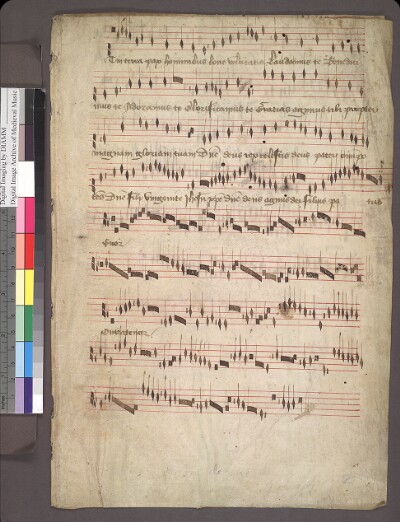 Et in terra pax hominibus bone voluntatis Laudamus te Benedici
mus te Adoramus te Glorificamus te Gratias agimus tibi propter
magnam gloriam tuam Dne deus rex celestis deus pater omnipo
tens Dne fili unigenite Jhesu xpe Dne deus agnus dei filius pa tris
Tenor
Contratenor
Digital Imaging by DIAMM
Digital Image Archive of Medieval Music